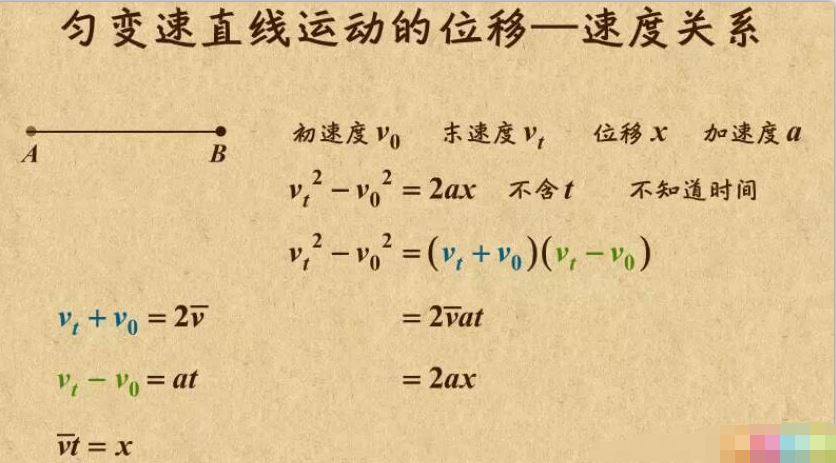 匀变速直线运动的位移—速度关系
A B
初速度 v₀ 末速度 vₜ 位移 x 加速度 a
vₜ² − v₀² = 2ax 不含 t 不知道时间
vₜ² − v₀² = (vₜ + v₀)(vₜ − v₀)
vₜ + v₀ = 2v̅ = 2v̅at
vₜ − v₀ = at = 2ax
v̅t = x